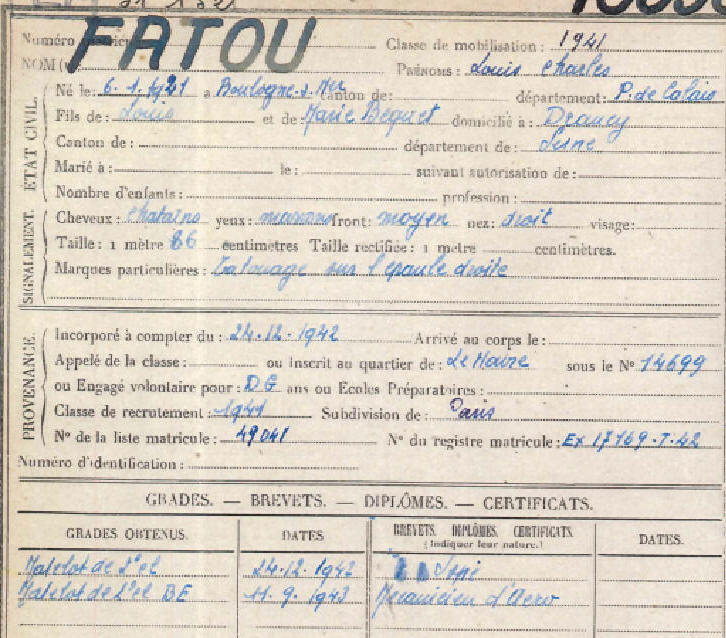 Numéro
FATOU
Classe de mobilisation : 1941
NOM
PRÉNOMS : Louis Charles
Né le : 6. 1. 1921 a Boulogne. s. Mer canton de : département : P. de Calais
Fils de : Louis et de Marie Bequet domicilié à : Drancy
Canton de : département de : Seine
Marié à : le : suivant autorisation de :
Nombre d'enfants : profession :
ÉTAT CIVIL.
Cheveux : chatains yeux : marrons front : moyen nez : droit visage :
Taille : 1 mètre 66 centimètres Taille rectifiée : 1 mètre centimètres.
Marques particulières : Tatouage sur l'epaule droite
SIGNALEMENT.
Incorporé à compter du : 24. 12. 1942 Arrivé au corps le :
Appelé de la classe : ou inscrit au quartier de : Le Havre sous le N° 14699
ou Engagé volontaire pour : DG ans ou Ecoles Préparatoires :
Classe de recrutement : 1941 Subdivision de : Paris
N° de la liste matricule : 49041 N° du registre matricule : Ex 17169. T. 42
PROVENANCE.
Numéro d'identification :
GRADES. — BREVETS. — DIPLÔMES. — CERTIFICATS.
GRADES OBTENUS. DATES BREVETS, DIPLÔMES, CERTIFICATS. DATES.
(Indiquer leur nature.)
Matelot de 2e cl 24. 12. 1942
Matelot de 2e cl BE 11. 9. 1943 Mecanicien d'Aero